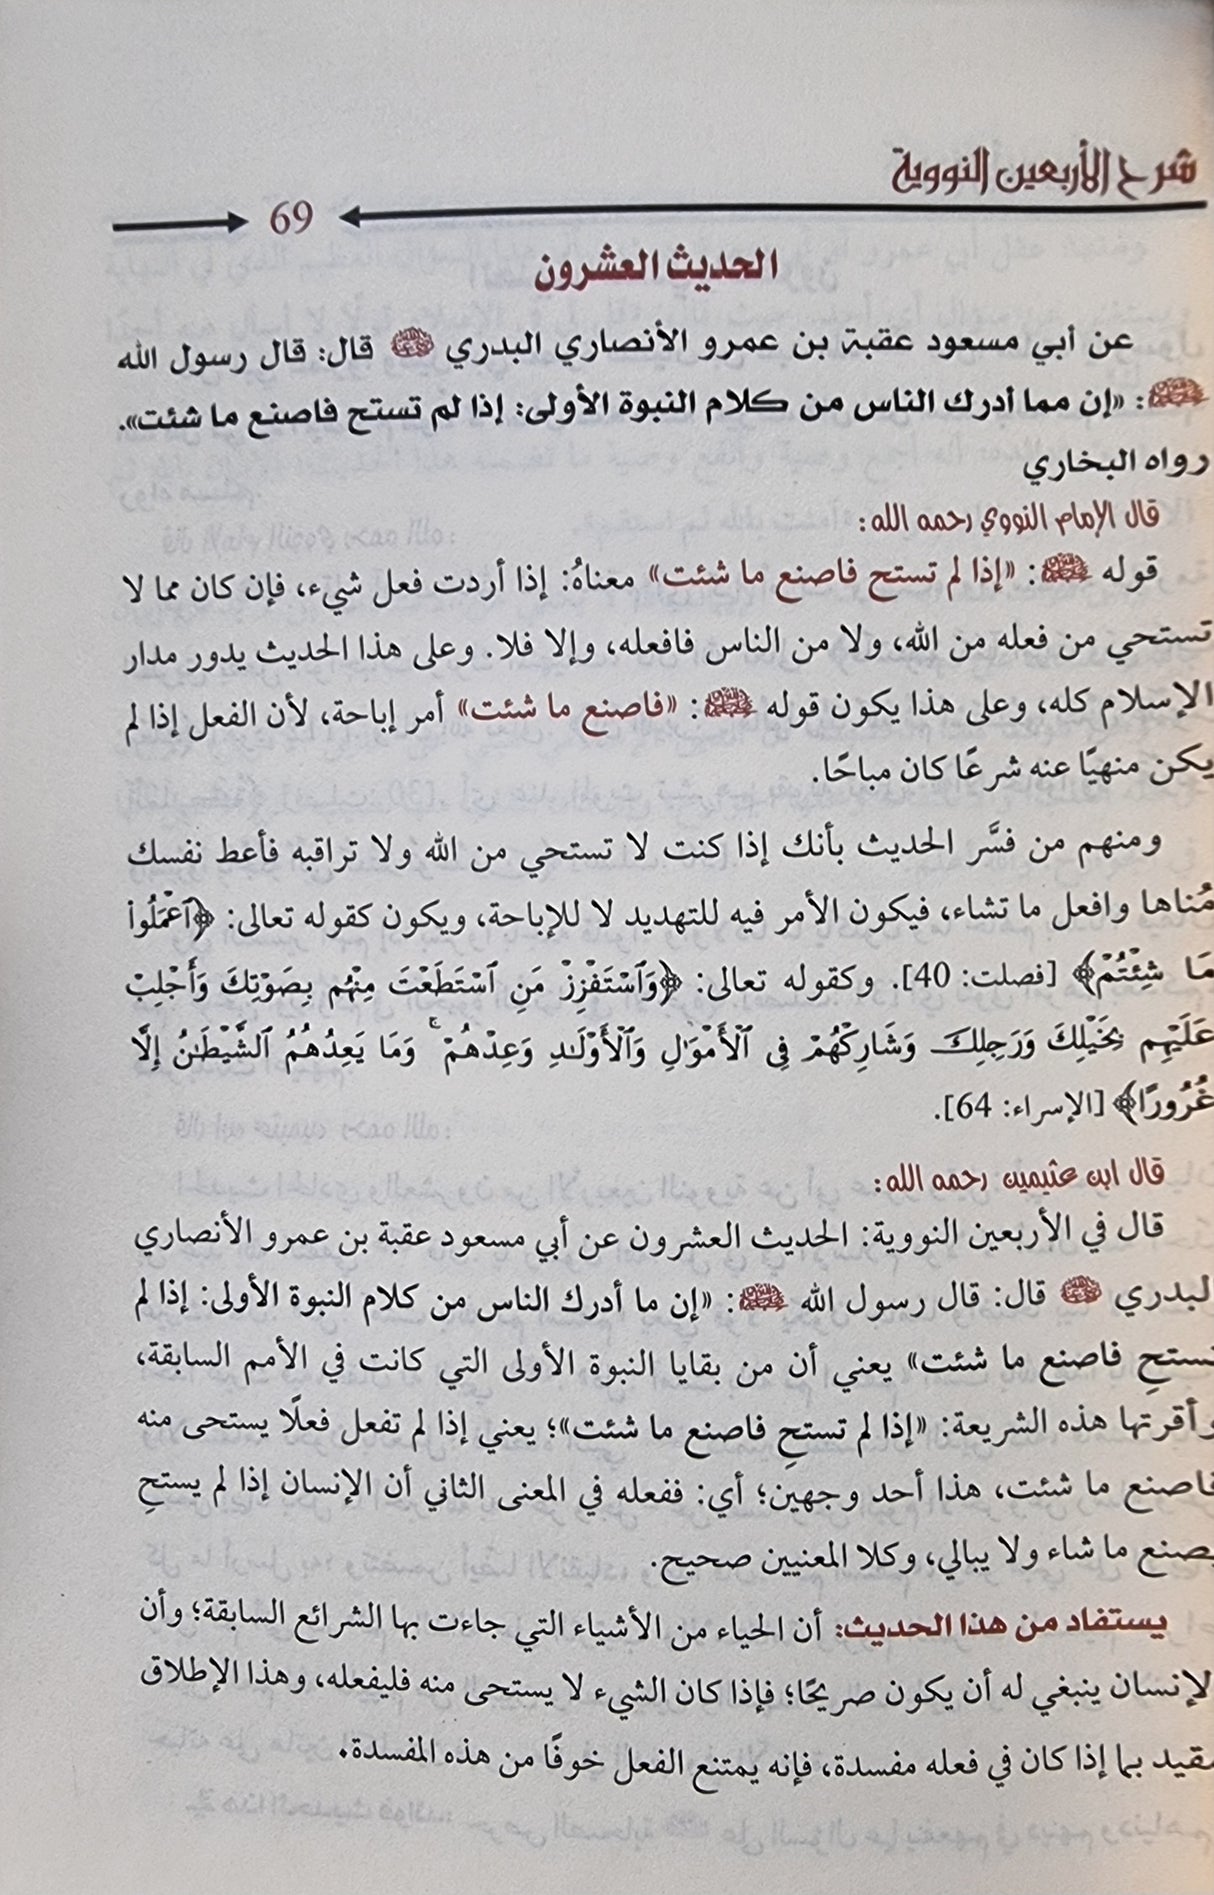 شرح الأربعين النووية
69
الحديث العشرون
عن أبي مسعود عقبة بن عمرو الأنصاري البدري رضي الله عنه قال: قال رسول الله
ﷺ: «إن مما أدرك الناس من كلام النبوة الأولى: إذا لم تستح فاصنع ما شئت».
رواه البخاري
قال الإمام النووي رحمه الله:
قوله ﷺ: «إذا لم تستح فاصنع ما شئت» معناهُ: إذا أردت فعل شيء، فإن كان مما لا
تستحي من فعله من الله، ولا من الناس فافعله، وإلا فلا. وعلى هذا الحديث يدور مدار
الإسلام كله، وعلى هذا يكون قوله ﷺ: «فاصنع ما شئت» أمر إباحة، لأن الفعل إذا لم
يكن منهيًا عنه شرعًا كان مباحًا.
ومنهم من فسَّر الحديث بأنك إذا كنت لا تستحي من الله ولا تراقبه فأعط نفسك
مُناها وافعل ما تشاء، فيكون الأمر فيه للتهديد لا للإباحة، ويكون كقوله تعالى: ﴿ٱعْمَلُوا۟
مَا شِئْتُمْ﴾ [فصلت: 40]. وكقوله تعالى: ﴿وَٱسْتَفْزِزْ مَنِ ٱسْتَطَعْتَ مِنْهُم بِصَوْتِكَ وَأَجْلِبْ
عَلَيْهِم بِخَيْلِكَ وَرَجِلِكَ وَشَارِكْهُمْ فِى ٱلْأَمْوَٰلِ وَٱلْأَوْلَٰدِ وَعِدْهُمْ ۚ وَمَا يَعِدُهُمُ ٱلشَّيْطَٰنُ إِلَّا
غُرُورًا﴾ [الإسراء: 64].
قال ابن عثيمين رحمه الله:
قال في الأربعين النووية: الحديث العشرون عن أبي مسعود عقبة بن عمرو الأنصاري
لبدري رضي الله عنه قال: قال رسول الله ﷺ: «إن ما أدرك الناس من كلام النبوة الأولى: إذا لم
تستحِ فاصنع ما شئت» يعني أن من بقايا النبوة الأولى التي كانت في الأمم السابقة،
وأقرتها هذه الشريعة: «إذا لم تستحِ فاصنع ما شئت»؛ يعني إذا لم تفعل فعلًا يستحى منه
فاصنع ما شئت، هذا أحد وجهين؛ أي: ففعله في المعنى الثاني أن الإنسان إذا لم يستحِ
يصنع ما شاء ولا يبالي، وكلا المعنيين صحيح.
يستفاد من هذا الحديث: أن الحياء من الأشياء التي جاءت بها الشرائع السابقة؛ وأن
لإنسان ينبغي له أن يكون صريحًا؛ فإذا كان الشيء لا يستحى منه فليفعله، وهذا الإطلاق
مقيد بما إذا كان في فعله مفسدة، فإنه يمتنع الفعل خوفًا من هذه المفسدة.